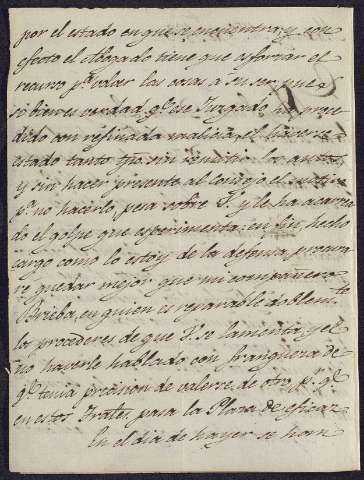 por el estado en que se encuentra, y con
efecto el Abogado tiene que esforzar el
recurso pª bolver las cosas a su ser, pues
si bien es verdad qª ese Juzgado ha proce
dido con refinada malicia, el haverse
estado tanto tpo sin remitir los autos,
y sin hacer presente al Consejo el motivo
pª no hacerlo, pesa sobre V. y le ha acarrea
do el golpe que experimenta; en fin, hecho
cargo como lo estoy de la defensa, procura
re quedar mejor que mi compañero
Brieba, en quien es reparable doblemte
los procederes de que V. se lamenta, y el
no haverle hablado con franqueza de
qª tenia precision de valerse de otro, pª qª
en estos Trates, para la Plaza de
En el dia de hayer se han